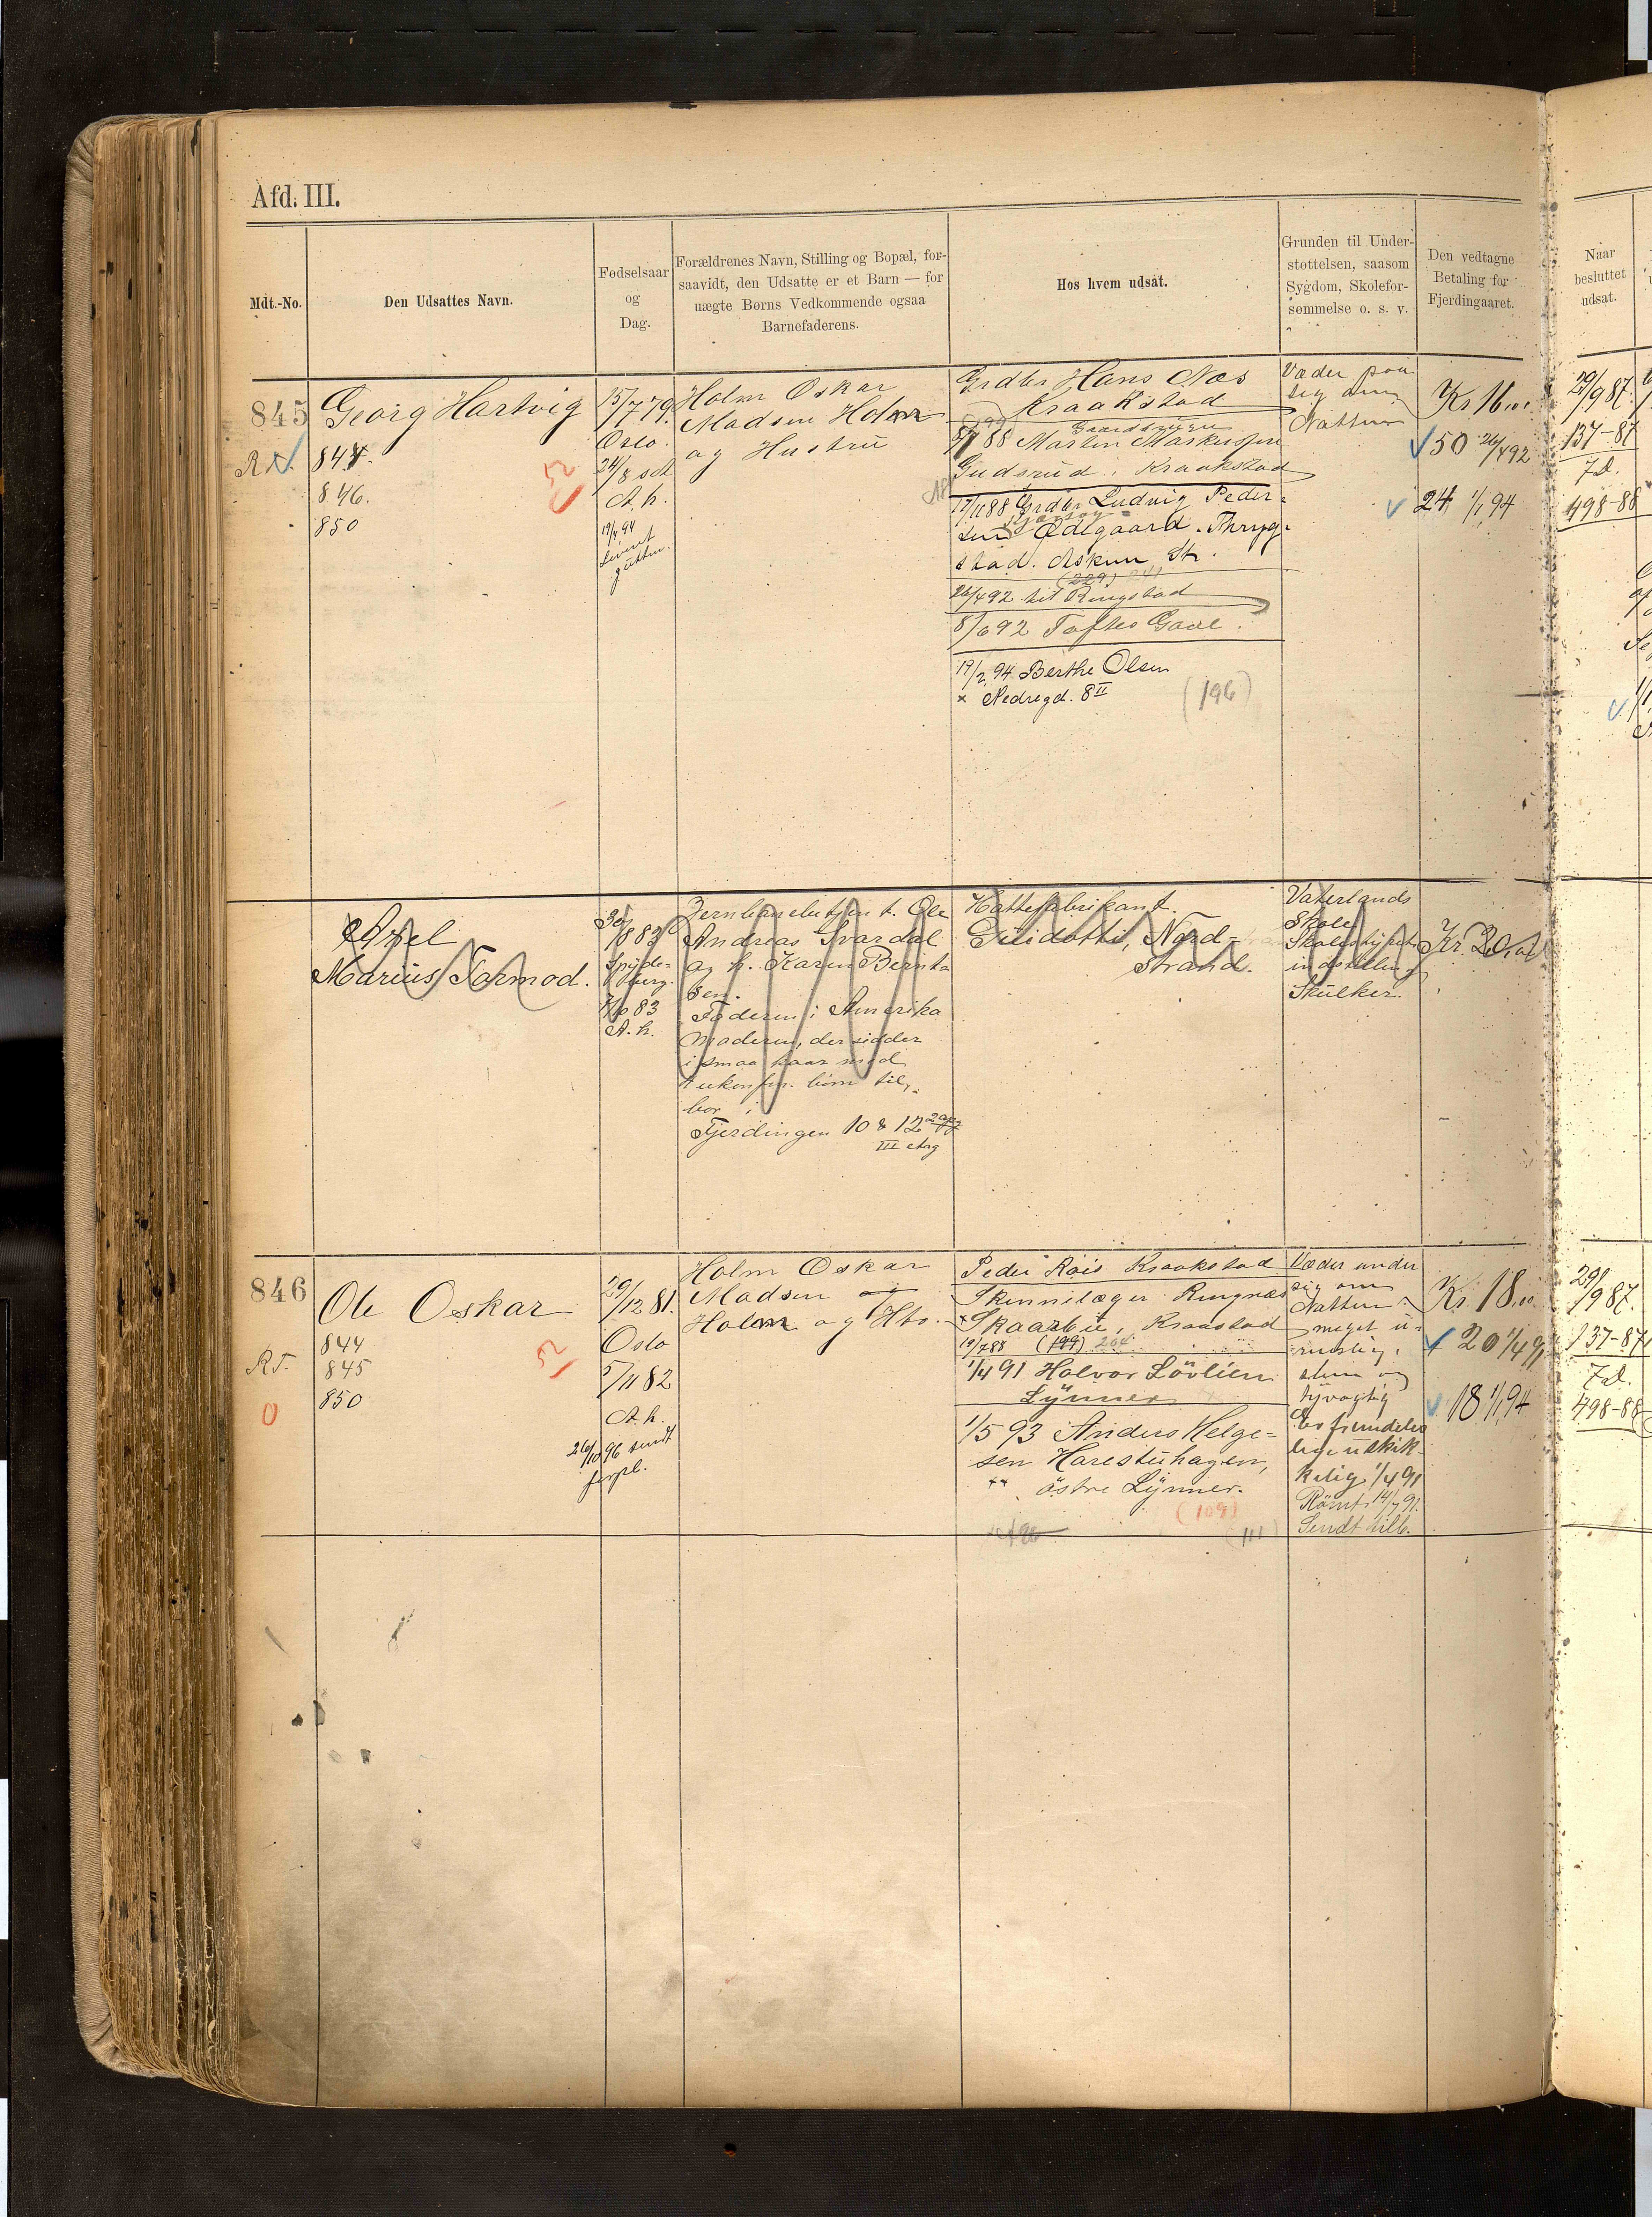 Afd. III.
Mdt.-No.
Den Udsattes Navn.
Fødselsaar
og
Dag.
Forældrenes Navn, Stilling og Bopæl, for-
saavidt, den Udsatte er et Barn — for
uægte Børns Vedkommende ogsaa
Barnefaderens.
Hos hvem udsat.
Grunden til Under-
støttelsen, saasom
Sygdom, Skolefor-
sømmelse o. s. v.
Den vedtagne
Betaling for
Fjerdingaaret.
Naar
besluttet
udsat.
845
Georg Hartvig
844.
846.
850
52
15/7 79.
Oslo.
24/8 s. A.
A. k.
19/4 94
Holm Oskar
Madsen Holm
og Hustru
Grdbr Hans Næs
Kraakstad
88 Martin Markussen
Gudsrud i Kraakstad
17/11 88 Grdbr Ludvig Peder-
sen Ødegaard. Thryg-
stad. Askim St.
(229)
26/4 92 til Ringstad
8/6 92 Toftes Gave.
19/2 94 Berthe Olsen
x Nedregd. 8 II
(196)
Væder paa
sig om
Natten
Kr 16.00
50 26/4 92
24 1/1 94
29/9 87.
137-87
7d.
498-88
Axel
Marius Tormod.
30/8 83
Spyde-
berg.
83
A. k.
Jernbanebetjent. Ole
Andreas Svardal
og h. Karin Bernt-
sen.
Faderen i Amerika
Moderen, der sidder
i smaa kaar med
ukonfm. børn til,
bor i
Fjerdingen 10 & 12
III etag
Hattefabrikant.
Nord-
strand.
Vaterlands
Skole
Skolestyrets
indstilling
Skulker.
Kr. 20.00
846
Ole Oskar
844
845
850
RT.
0
52
29/12 81.
Oslo
5/11 82
A. k.
26/10 96 sendt
forpl.
Holm Oskar
Madsen og
Holm og Hbs.
Peder Rois Kraakstad
Ringnæs
Skaarbu, Kraastad
19/7 88 (199) 204
1/4 91 Halvor Lövlien
Lynner
1/5 93 Anders Helge-
sen Harestuhagen,
xx östre Lynner.
(109)
(111)
Væder under
sig om
Natten.
meget u-
renslig,
slem og
tyvagtig
Er fremdeles
lige uskik-
kelig 1/4 91
Römt 14/7 91.
Sendt tilb.
Kr. 18.00
20 1/4 91
18 1/1 94
29/9 87.
137-87
7d.
498-88